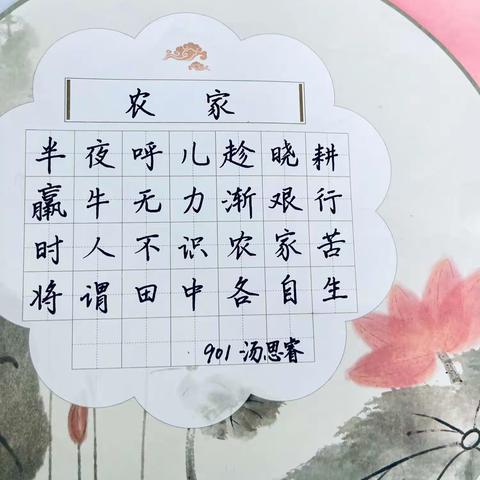 农家
半夜呼儿趁晓耕
羸牛无力渐艰行
时人不识农家苦
将谓田中各自生
901 汤思睿